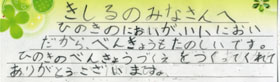 きしるのみなさんへ
ひのきのにおいが、いいにおい
だから、べんきょうもたのしいです。
ひのきのべんきょうづくえをつくってくれて
ありがとうございます。